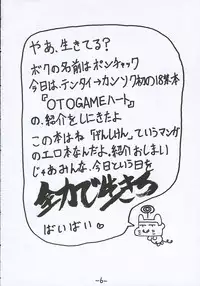 やぁ、生きてる?
ボクの名前はポンチャック
今日は、テンタイ→カンソク初の18禁本
『OTOGAMEハート』
の、紹介をしにきたよ
この本はね「げんしけん」ていうマンガ
のエロ本なんだよ。紹介おしまい
じゃあみんな、今日という日を
全力で生きろ
ばいばい
-6-